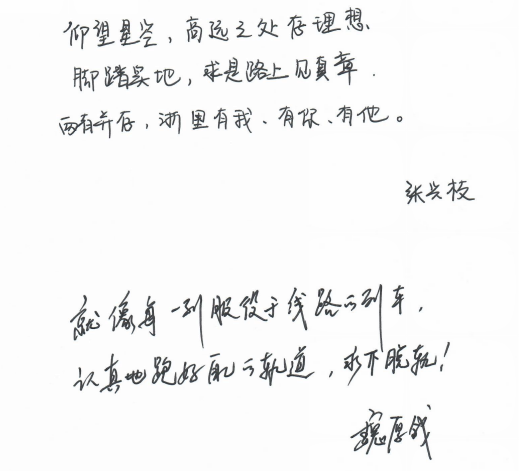 仰望星空，高远之处存理想、
脚踏实地，求是路上见真章．
两者并存，浙里有我、有你、有他。
张兴枝
就像每一列服役于线路的列车，
认真地跑好自己的轨道，永不脱轨！
厚